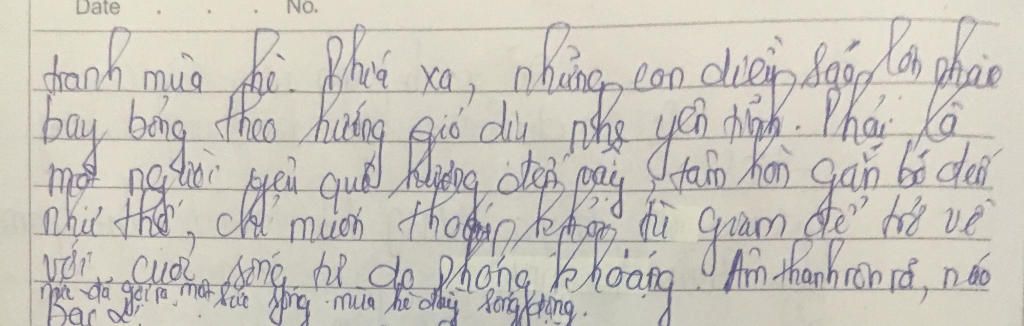 Date . . . No.
tranh mùa hè. Phía xa, những con diều sáo lộn nhào
bay bổng theo hướng gió dịu nhẹ yên tĩnh. Phải là
một người yêu quê hương đến vậy, tâm hồn gắn bó đến
như thế, chỉ muốn thoát khỏi tù giam để trở về
với cuộc sống tự do phóng khoáng. Âm thanh rôn rả, náo
nức đã gợi ra một sức sống mùa hè đầy sống động.